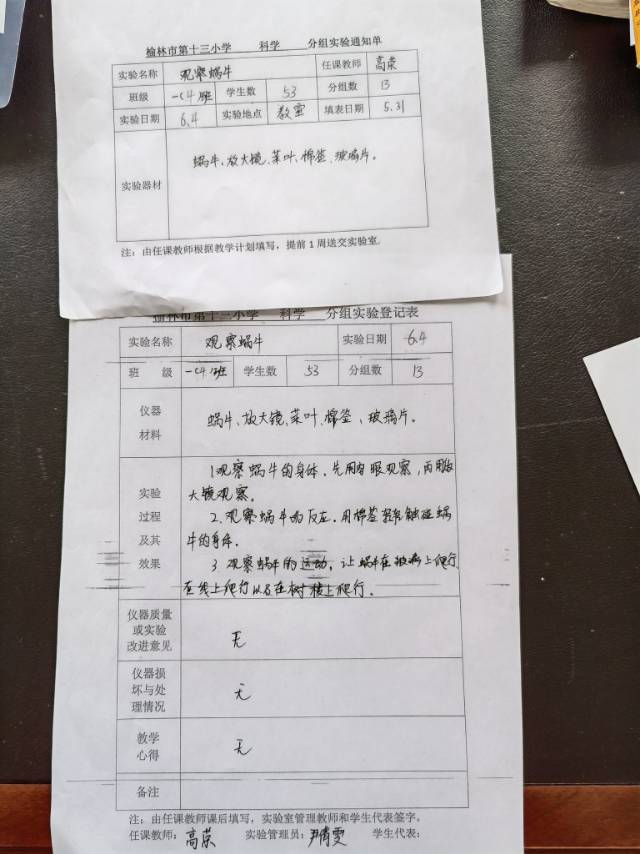 榆林市第十三小学 科学 分组实验通知单
实验名称 观察蜗牛 任课教师 高荣
班级 一(4)班 学生数 53 分组数 13
实验日期 6.4 实验地点 教室 填表日期 5.31
实验器材 蜗牛、放大镜、菜叶、棉签、玻璃片。
注：由任课教师根据教学计划填写，提前1周送交实验室。
榆林市第十三小学 科学 分组实验登记表
实验名称 观察蜗牛 实验日期 6.4
班 级 一(4)班 学生数 53 分组数 13
仪器
材料
蜗牛、放大镜、菜叶、棉签、玻璃片。
实验
过程
及其
效果
1.观察蜗牛的身体。先用肉眼观察，再用放
大镜观察。
2.观察蜗牛的反应。用棉签轻轻触碰蜗
牛的身体。
3.观察蜗牛的运动，让蜗牛在玻璃上爬行
在线上爬行以及在树枝上爬行。
仪器质量
或实验
改进意见
无
仪器损
坏与处
理情况
无
教学
心得
无
备注
注：由任课教师课后填写，实验室管理教师和学生代表签字。
任课教师：高荣 实验管理员：尹倩雯 学生代表：